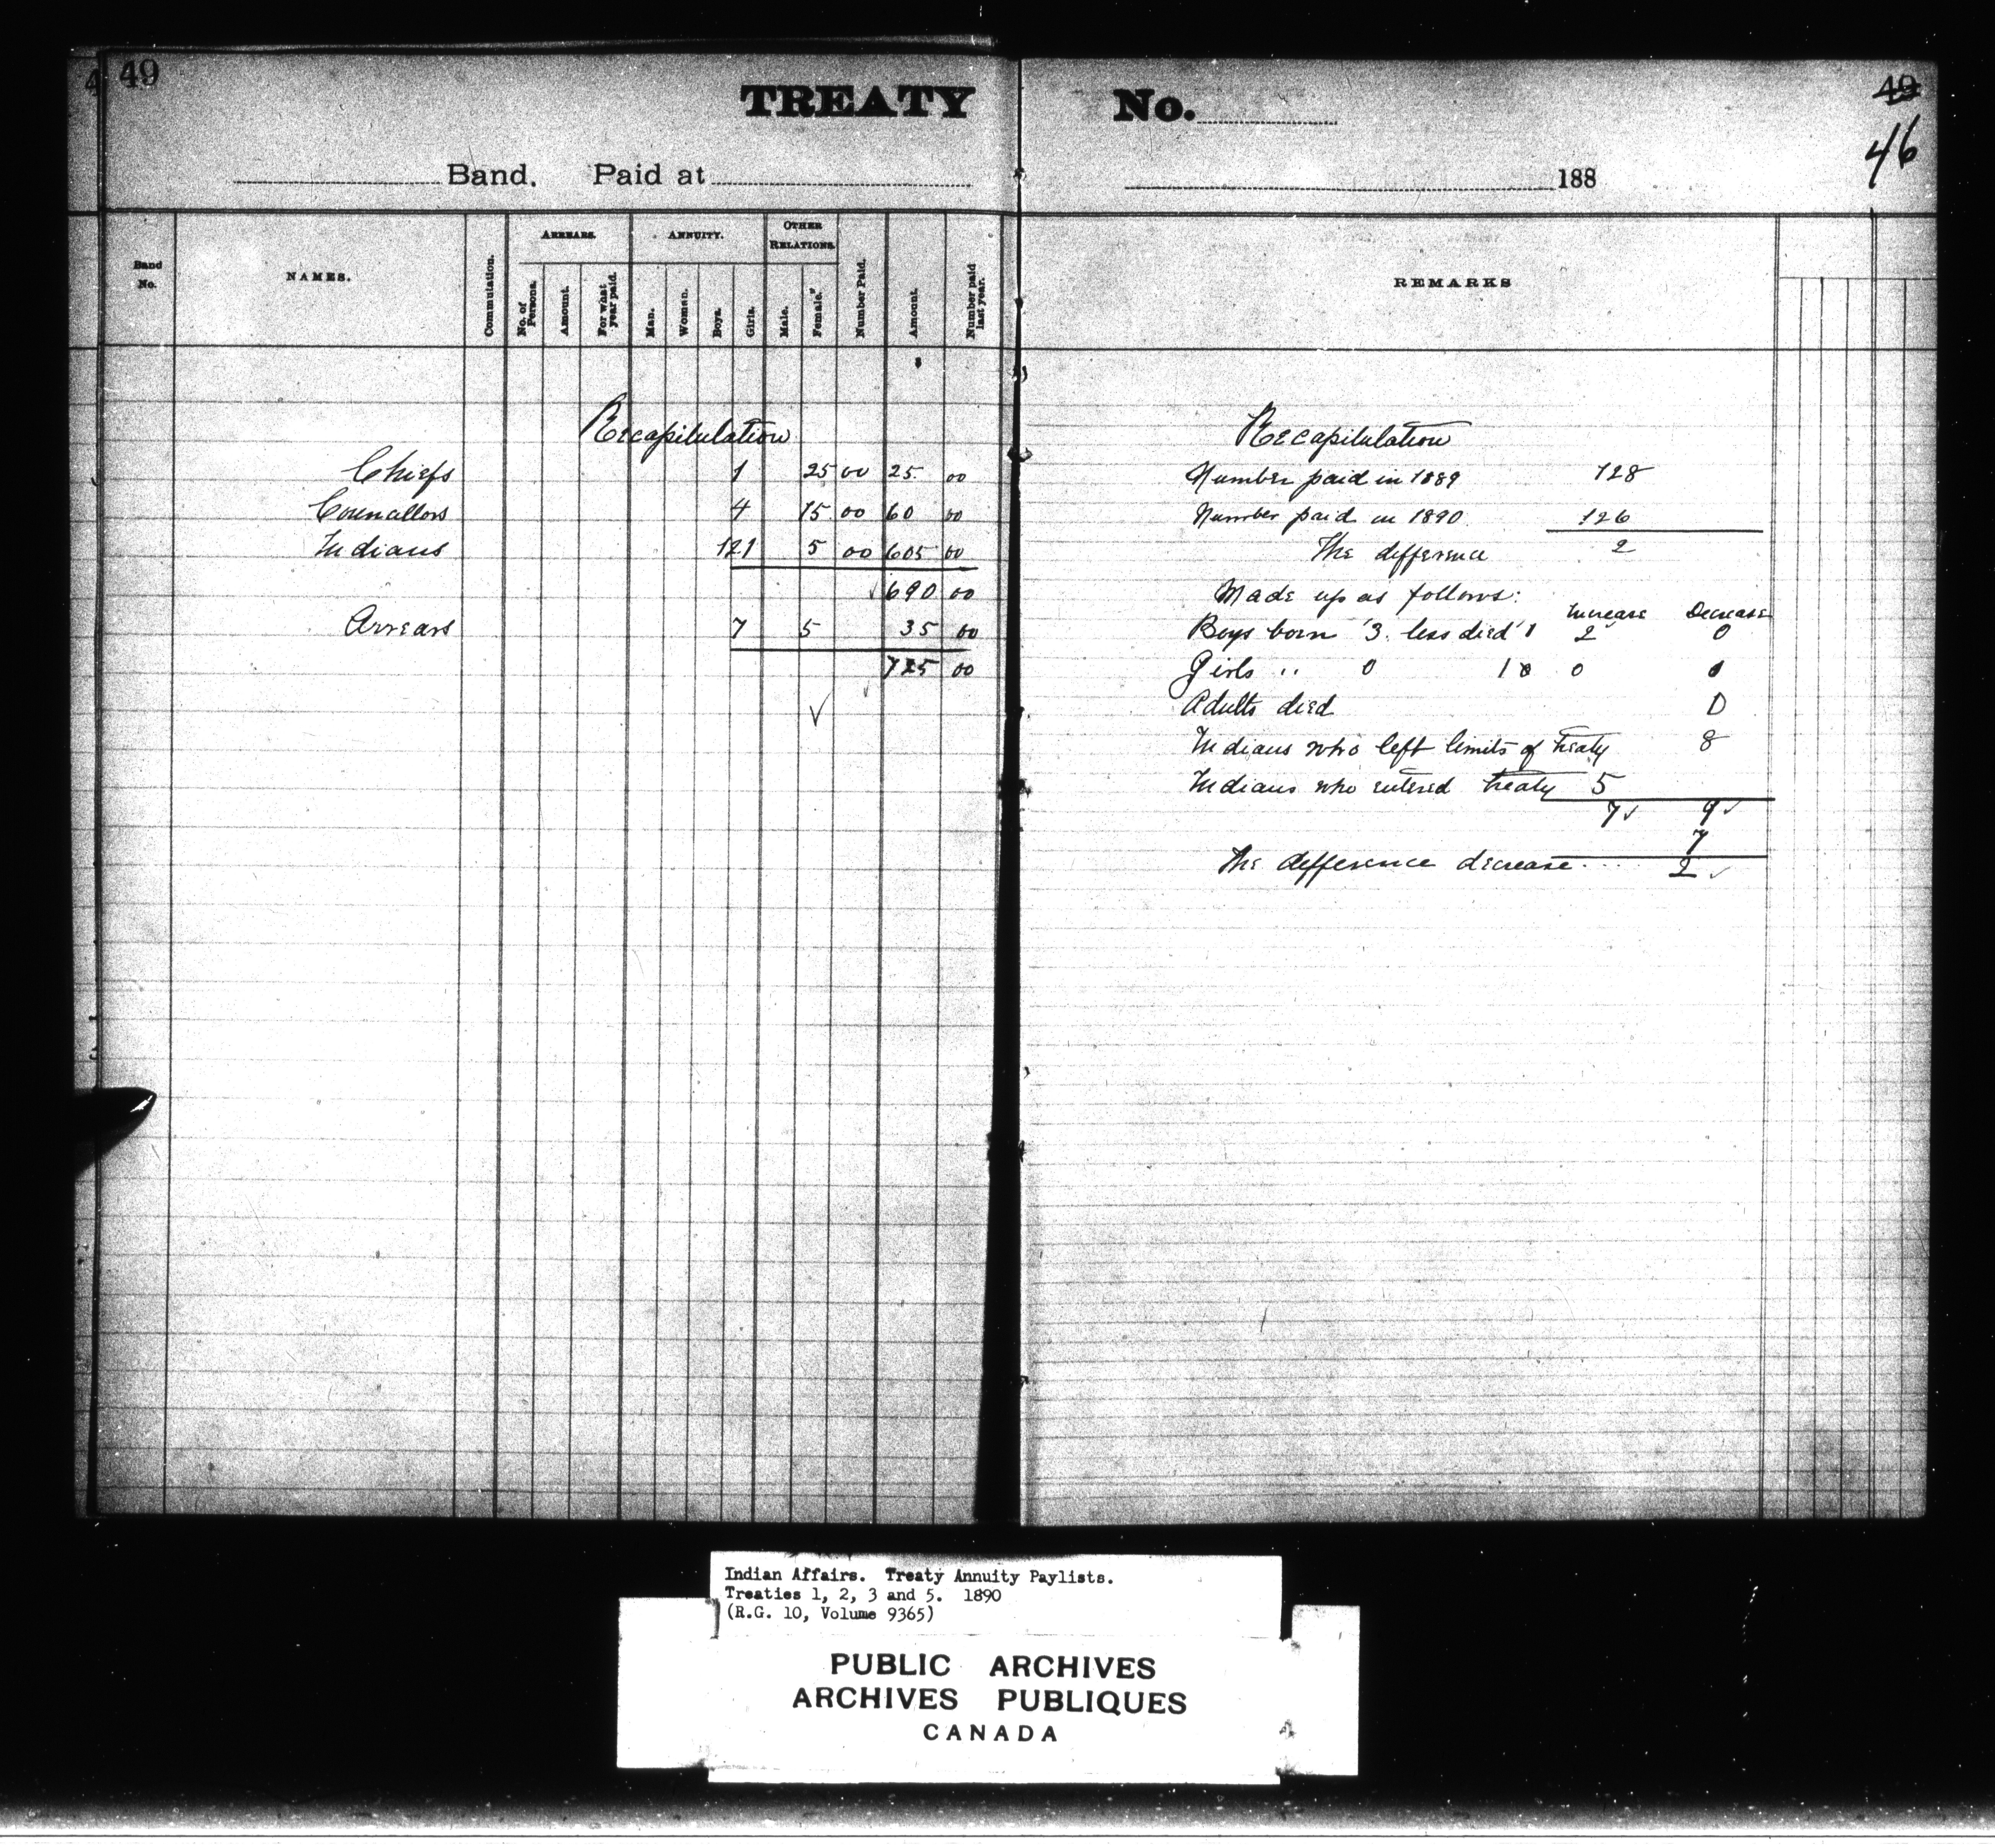 49
TREATY No.
49
46
Band. Paid at 188
Band No.
NAMES.
Commutation.
ARREARS.
No. of Persons.
Amount.
For what year paid.
ANNUITY.
Man.
Woman.
Boys.
Girls.
OTHER RELATIONS.
Male.
Female.
Number Paid.
Amount.
Number paid last year.
REMARKS
Recapitulation
Chiefs 1 25 00 25. 00
Councillors 4 15 00 60 00
Indians 121 5 00 605 00
690 00
Arrears 7 5 35 00
725 00
Recapitulation
Number paid in 1889 128
Number paid in 1890 126
The difference 2
Made up as follows:
Increase Decrease
Boys born 3. less died 1 2 0
Girls " 0 1 0
Adults died 0
Indians who left limits of treaty 8
Indians who entered treaty 5
7 9
7
The difference decrease 2
Indian Affairs. Treaty Annuity Paylists.
Treaties 1, 2, 3 and 5. 1890
(R.G. 10, Volume 9365)
PUBLIC ARCHIVES
ARCHIVES PUBLIQUES
CANADA